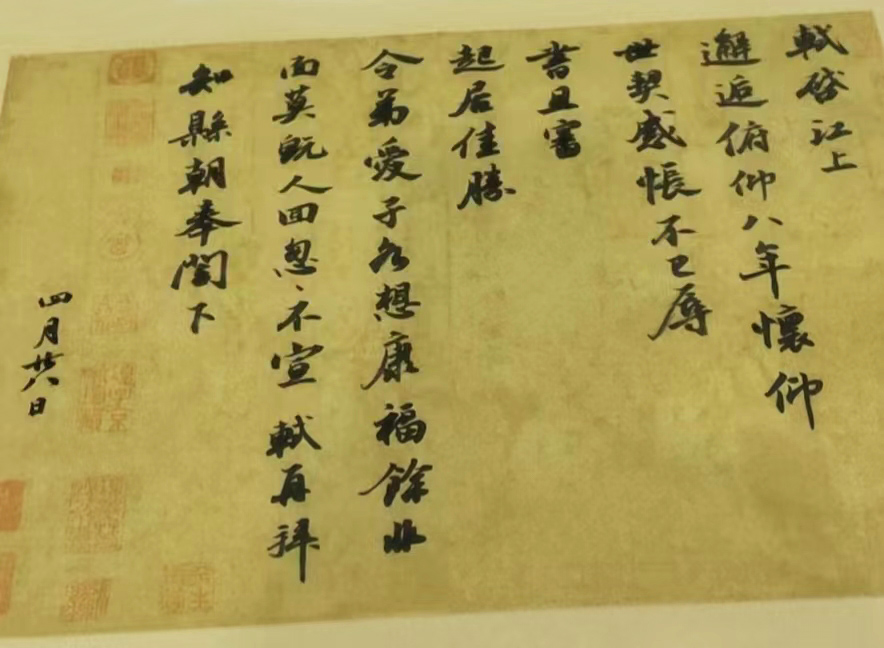 軾啓江上
邂逅俯仰八年懷仰
世契感悵不已辱
書且審
起居佳勝
令弟愛子各想康福餘非
面莫既人回怱〻不宣 軾再拜
知縣朝奉閤下
四月廿八日